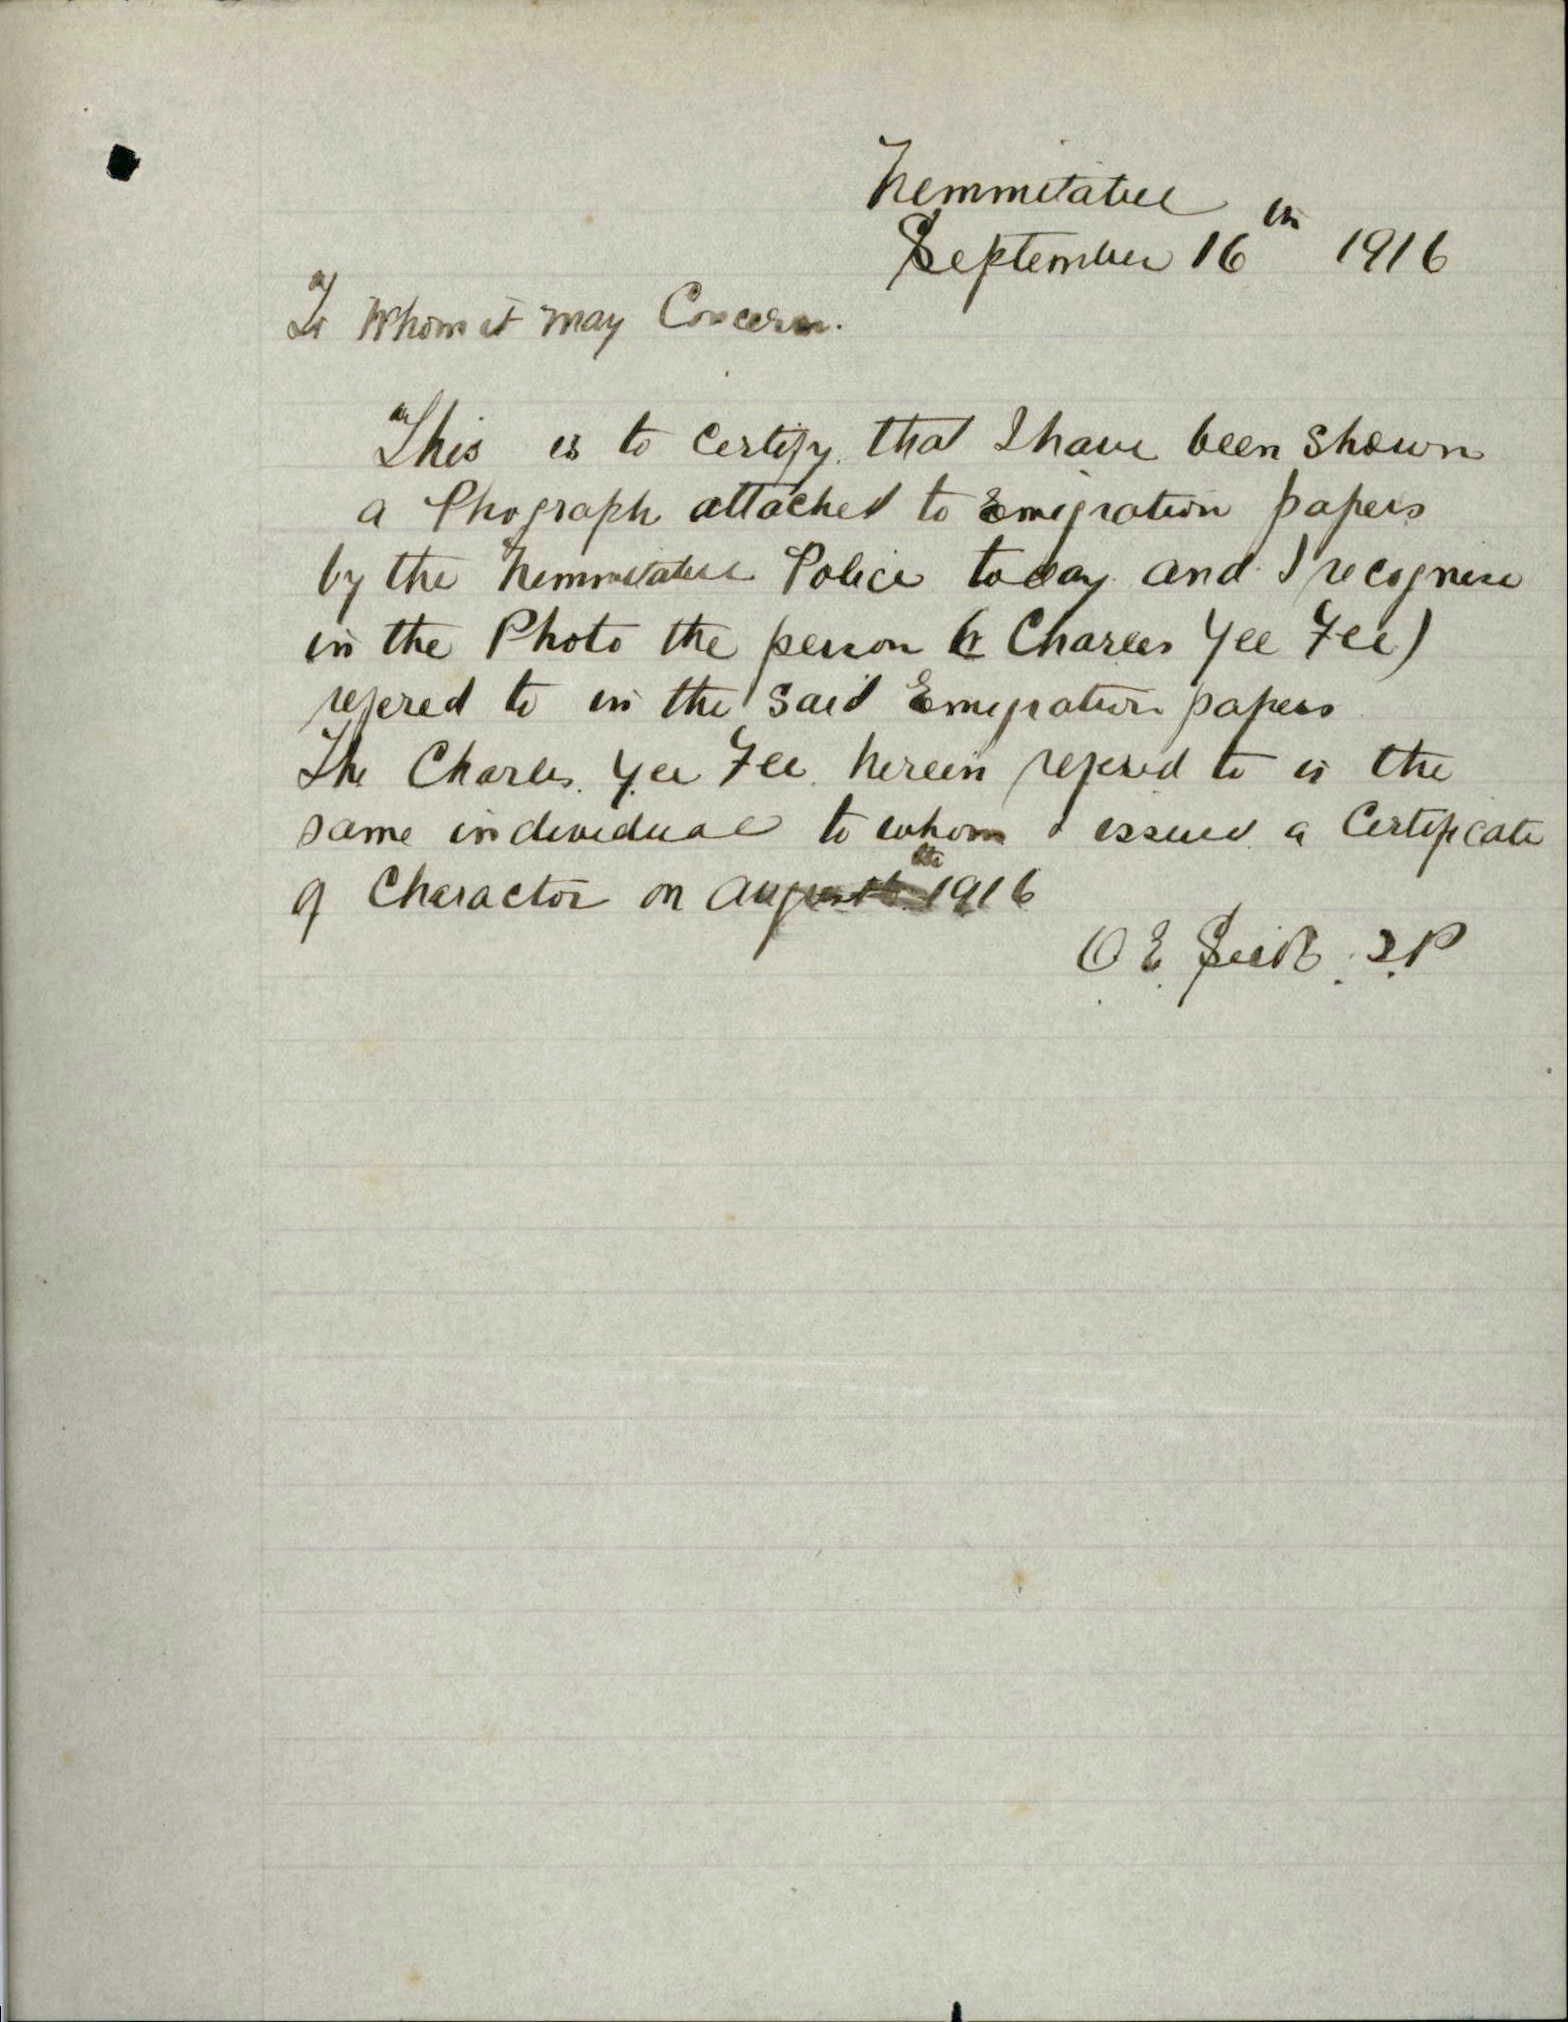 Nemmitabel
September 16th 1916
To Whom it may Concern.
This is to Certify that I have been Shown
a Phograph attached to Emigration papers
by the Nemmitabel Police today and I recognise
in the Photo the person (Charles Yee Fee)
refered to in the said Emigration papers
The Charles Yee Fee herein refered to is the
same individual to whom I issued a Certificate
of Charactor on August 1916
O E J.P